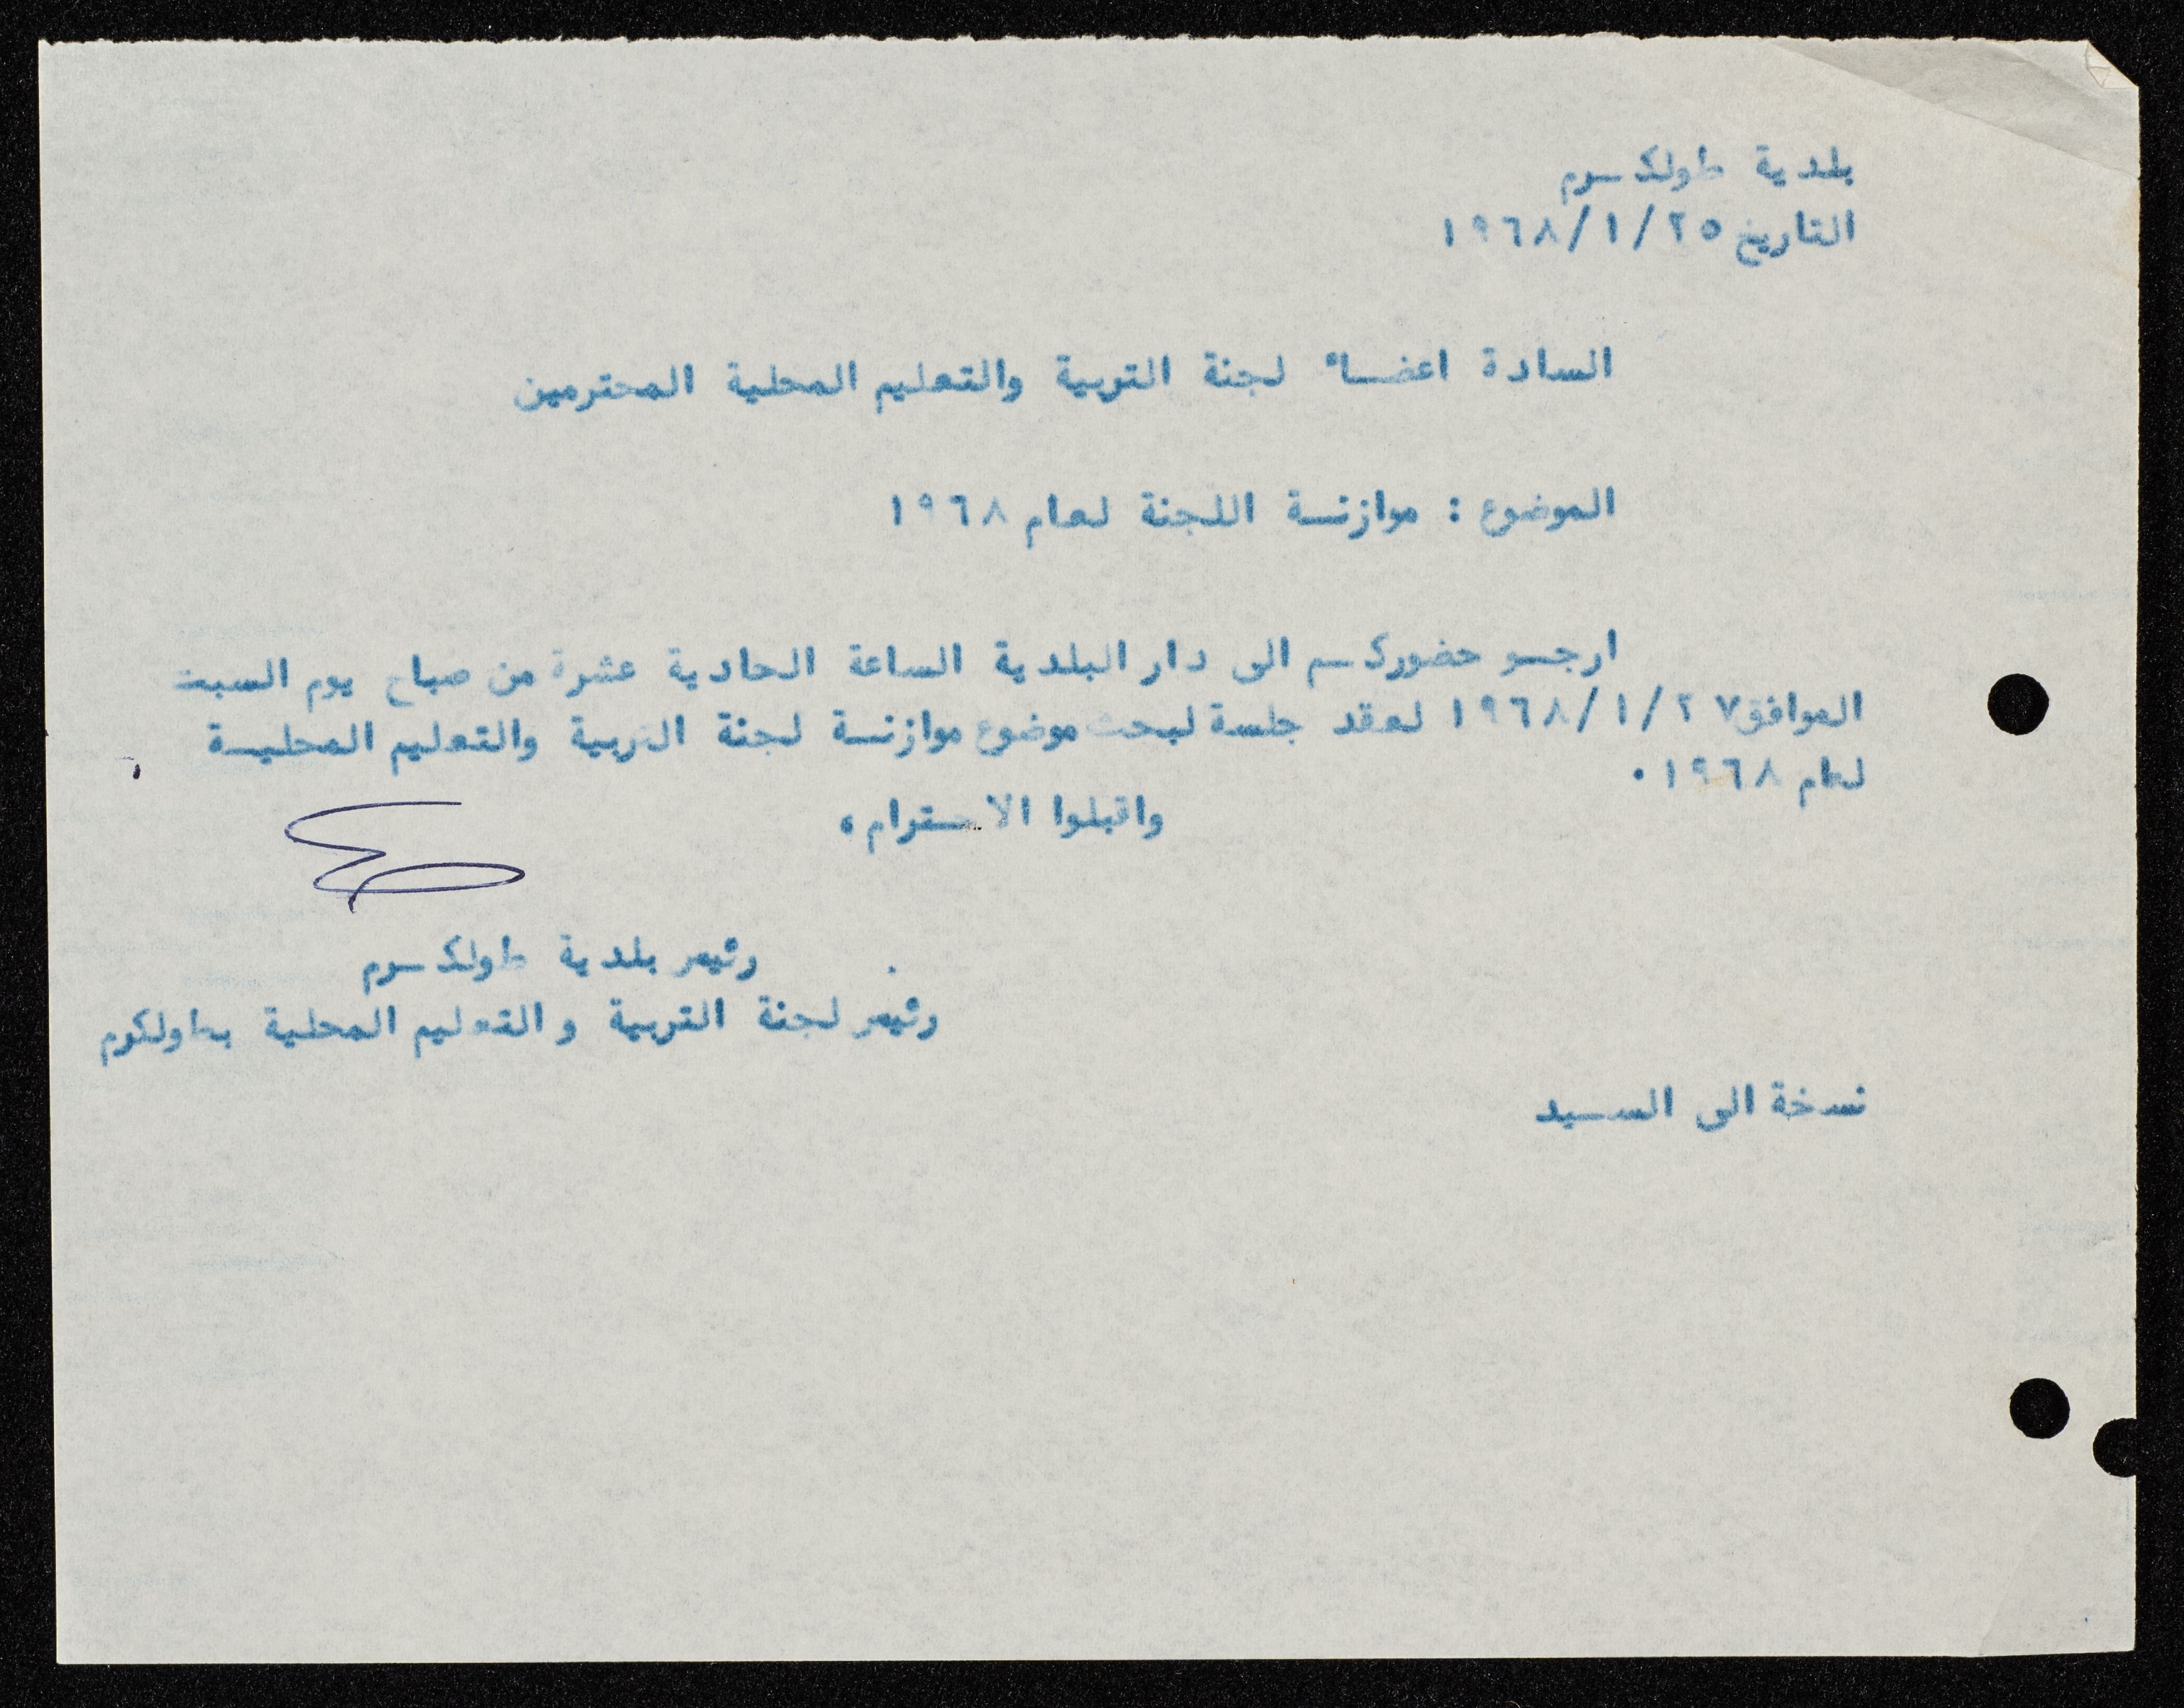 بلدية طولكرم
التاريخ ٢٥/١/١٩٦٨
السادة اعضاء لجنة التربية والتعليم المحلية المحترمين
الموضوع : موازنة اللجنة لعام ١٩٦٨
ارجو حضوركم الى دار البلدية الساعة الحادية عشرة من صباح يوم السبت
الموافق ٢٧/١/١٩٦٨ لعقد جلسة لبحث موضوع موازنة لجنة التربية والتعليم المحلية
لعام ١٩٦٨ .
واقبلوا الاحترام ،
رئيس بلدية طولكرم
رئيس لجنة التربية و التعليم المحلية بطولكرم
نسخة الى السيد